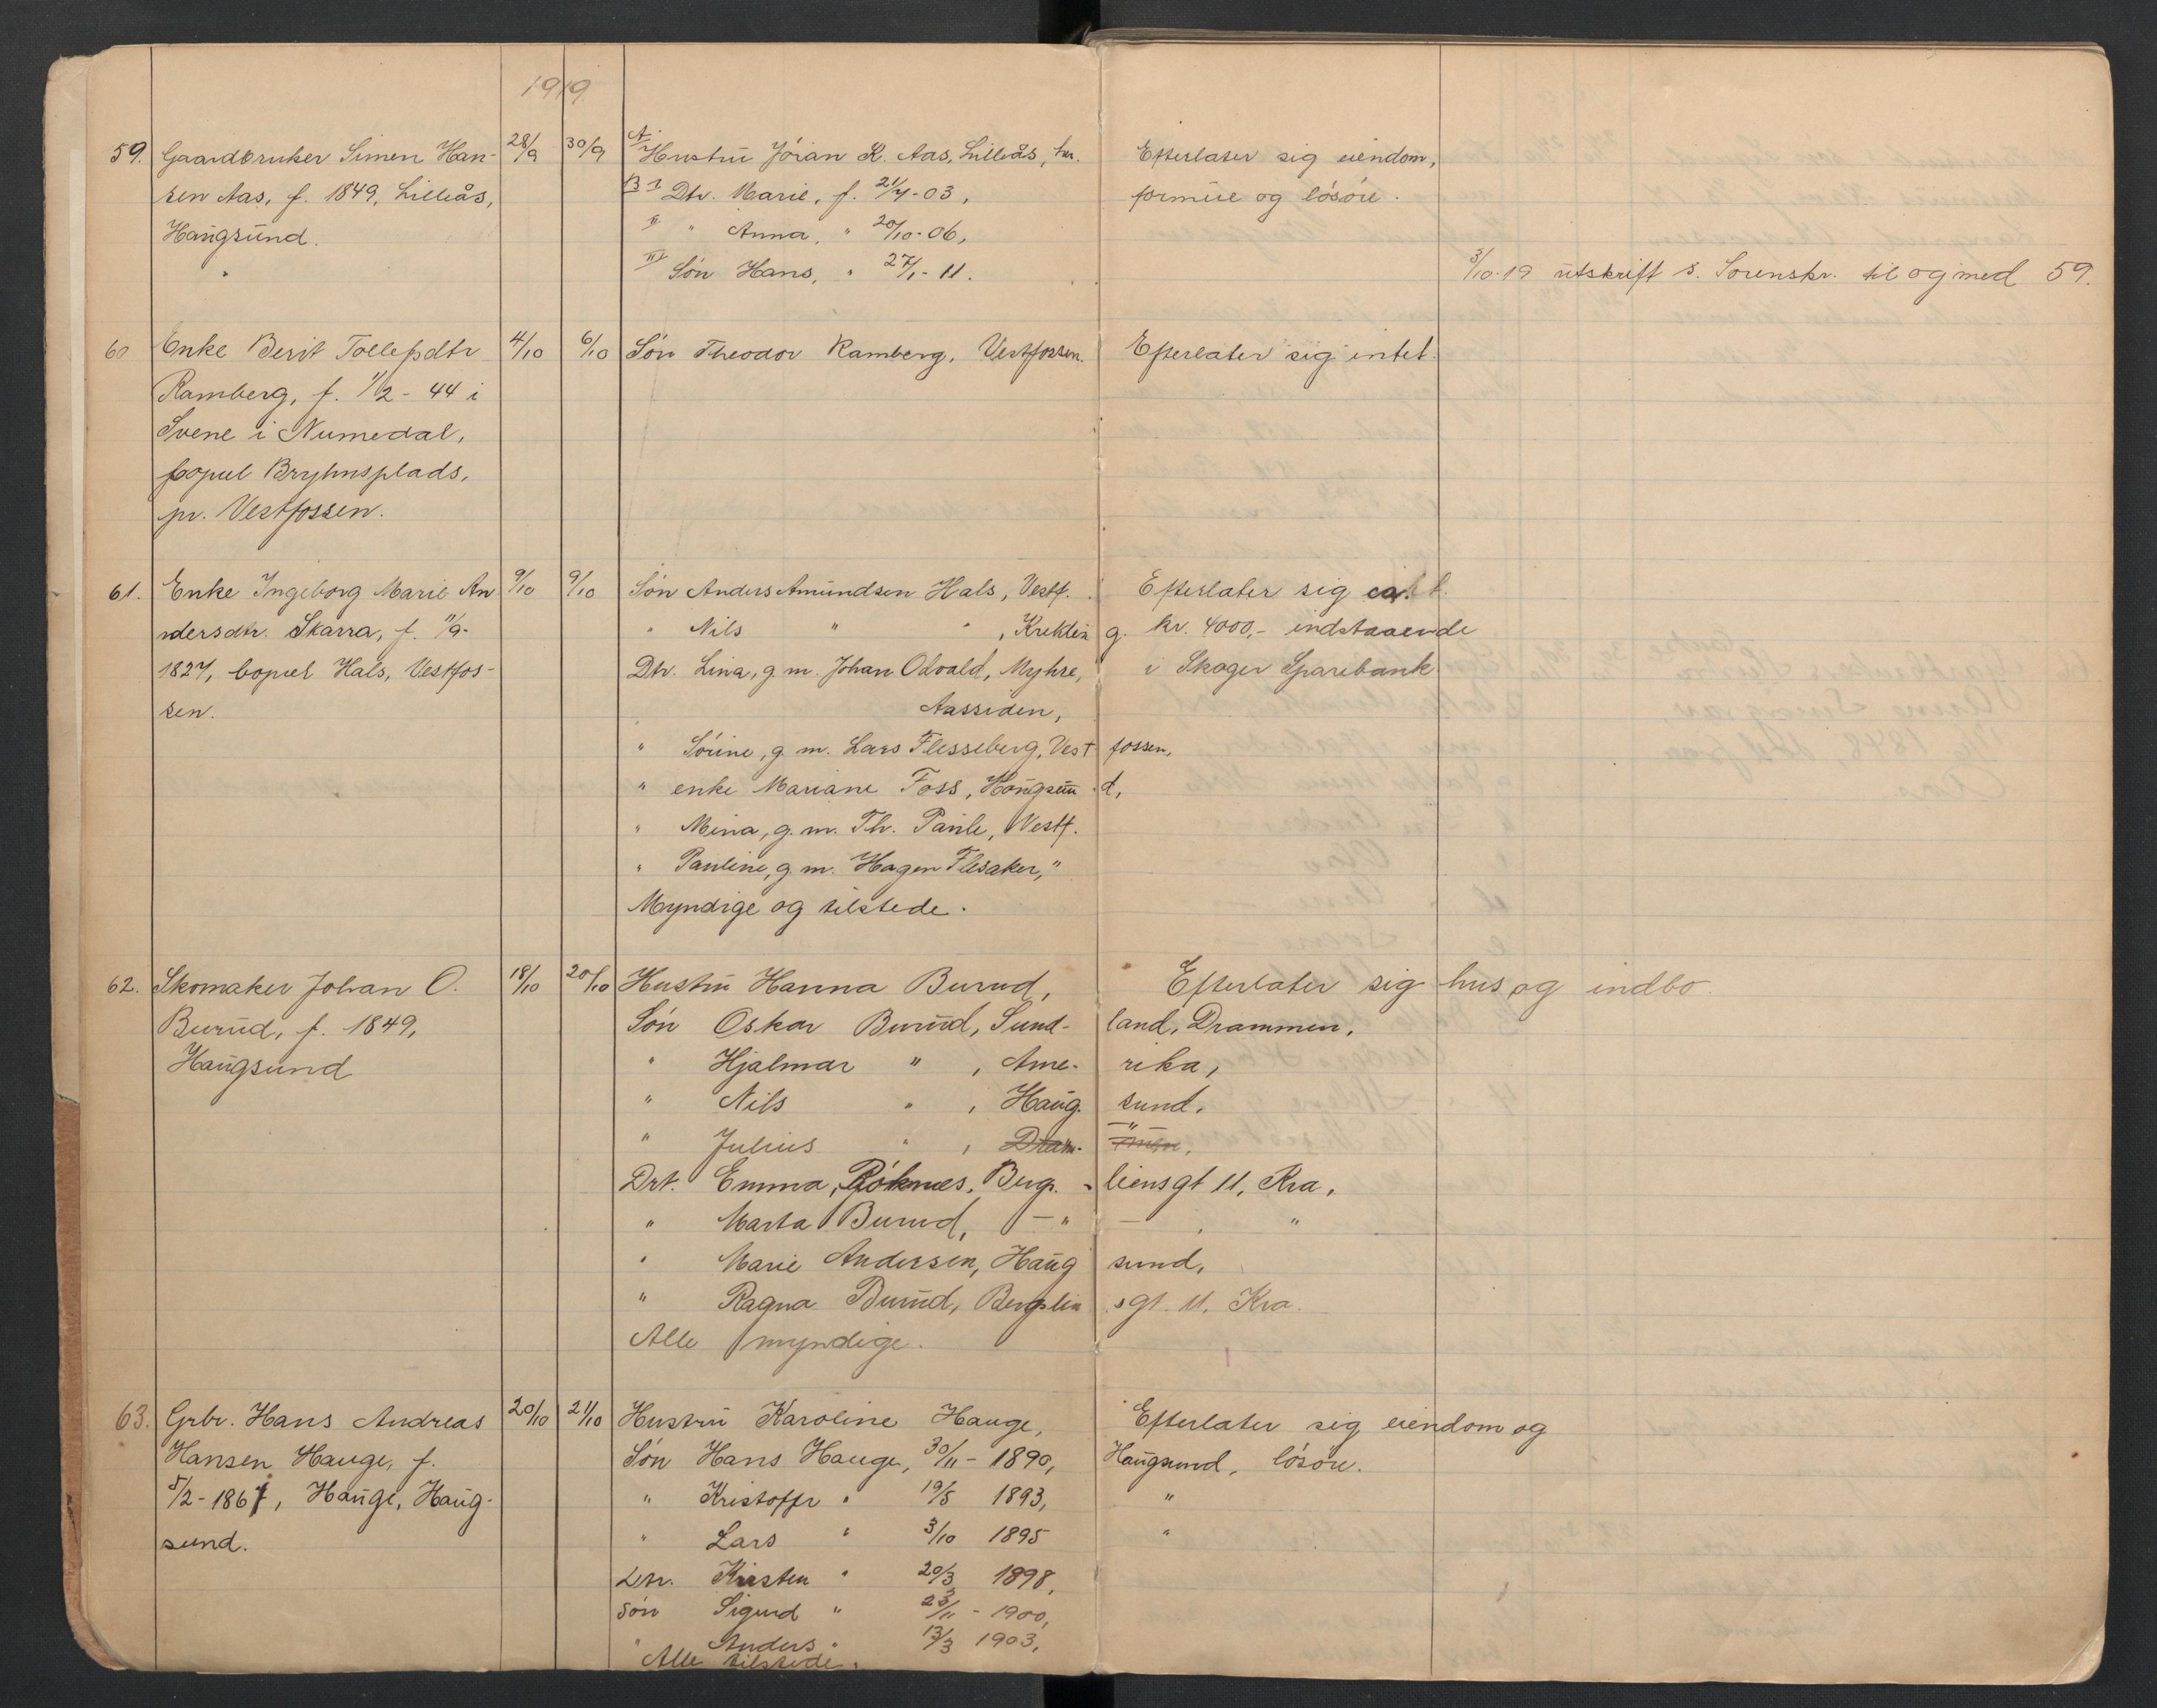 1919
59. Gaardbruker Simen Han- 28/9 30/9 A. Hustru Jöran K. Aas, Lilleås, her. Efterlater sig eiendom,
sen Aas, f. 1849, Lilleås, B I Dtr. Marie, f. 21/4-03, formue og lösöre.
Haugsund. II " Anna, " 20/10-06,
III Sön Hans, " 27/1-11. 3/10-19 utskrift s. Sorenskr. til og med 59.
60 Enke Berit Tollefsdtr 4/10 6/10 Sön Theodor Ramberg, Vestfossen. Efterlater sig intet.
Ramberg, f. 1/2-44 i
Svene i Numedal,
bopæl Bryhnsplads,
pr. Vestfossen.
61. Enke Ingeborg Marie An 9/10 9/10 Sön Anders Amundsen Hals, Vestf. Efterlater sig ca.
ndersdtr. Skarra, f. 11/9- " Nils " " , Krekling. kr. 4000,- indstaaende
1827, bopæl Hals, Vestfos- Dtr. Lina, g. m. Johan Odvald, Myhre, i Skoger Sparebank.
sen. Aassiden,
" Sörine, g. m. Lars Flesseberg, Vestfossen,
" enke Mariane Foss, Hougsund,
" Mina, g. m. Th. Paule, Vestf.
" Pauline, g. m. Hagen Flesaker, "
Myndige og tilstede.
62. Skomaker Johan O. 18/10 20/10 Hustru Hanna Burud, Efterlater sig hus og indbo.
Burud, f. 1849, Sön Oskar Burud, Sund- land, Drammen,
Haugsund " Hjalmar " , Ame- rika,
" Nils " , Haug- sund,
" Julius " , Dram- men, — " —
Drt. Emma, Röknes, Berg- liensgt 11, Kra,
" Marta Burud, — " — , "
" Marie Andersen, Haug sund,
" Ragna Burud, Bergslin sgt. 11, Kra.
Alle myndige.
63. Grbr. Hans Andreas 20/10 21/10 Hustru Karoline Hauge, Efterlater sig eiendom og
Hansen Hauge, f. Sön Hans Hauge, 30/11-1890, Haugsund, lösöre.
5/2-1867, Hauge, Haug- " Kristoffr " 19/5 1893, "
sund. " Lars " 3/10 1895 "
Dtr. Kirsten " 20/3 1898,
Sön Sigurd " 23/11-1900,
" Anders " 13/3 1903,
Alle tilstede.